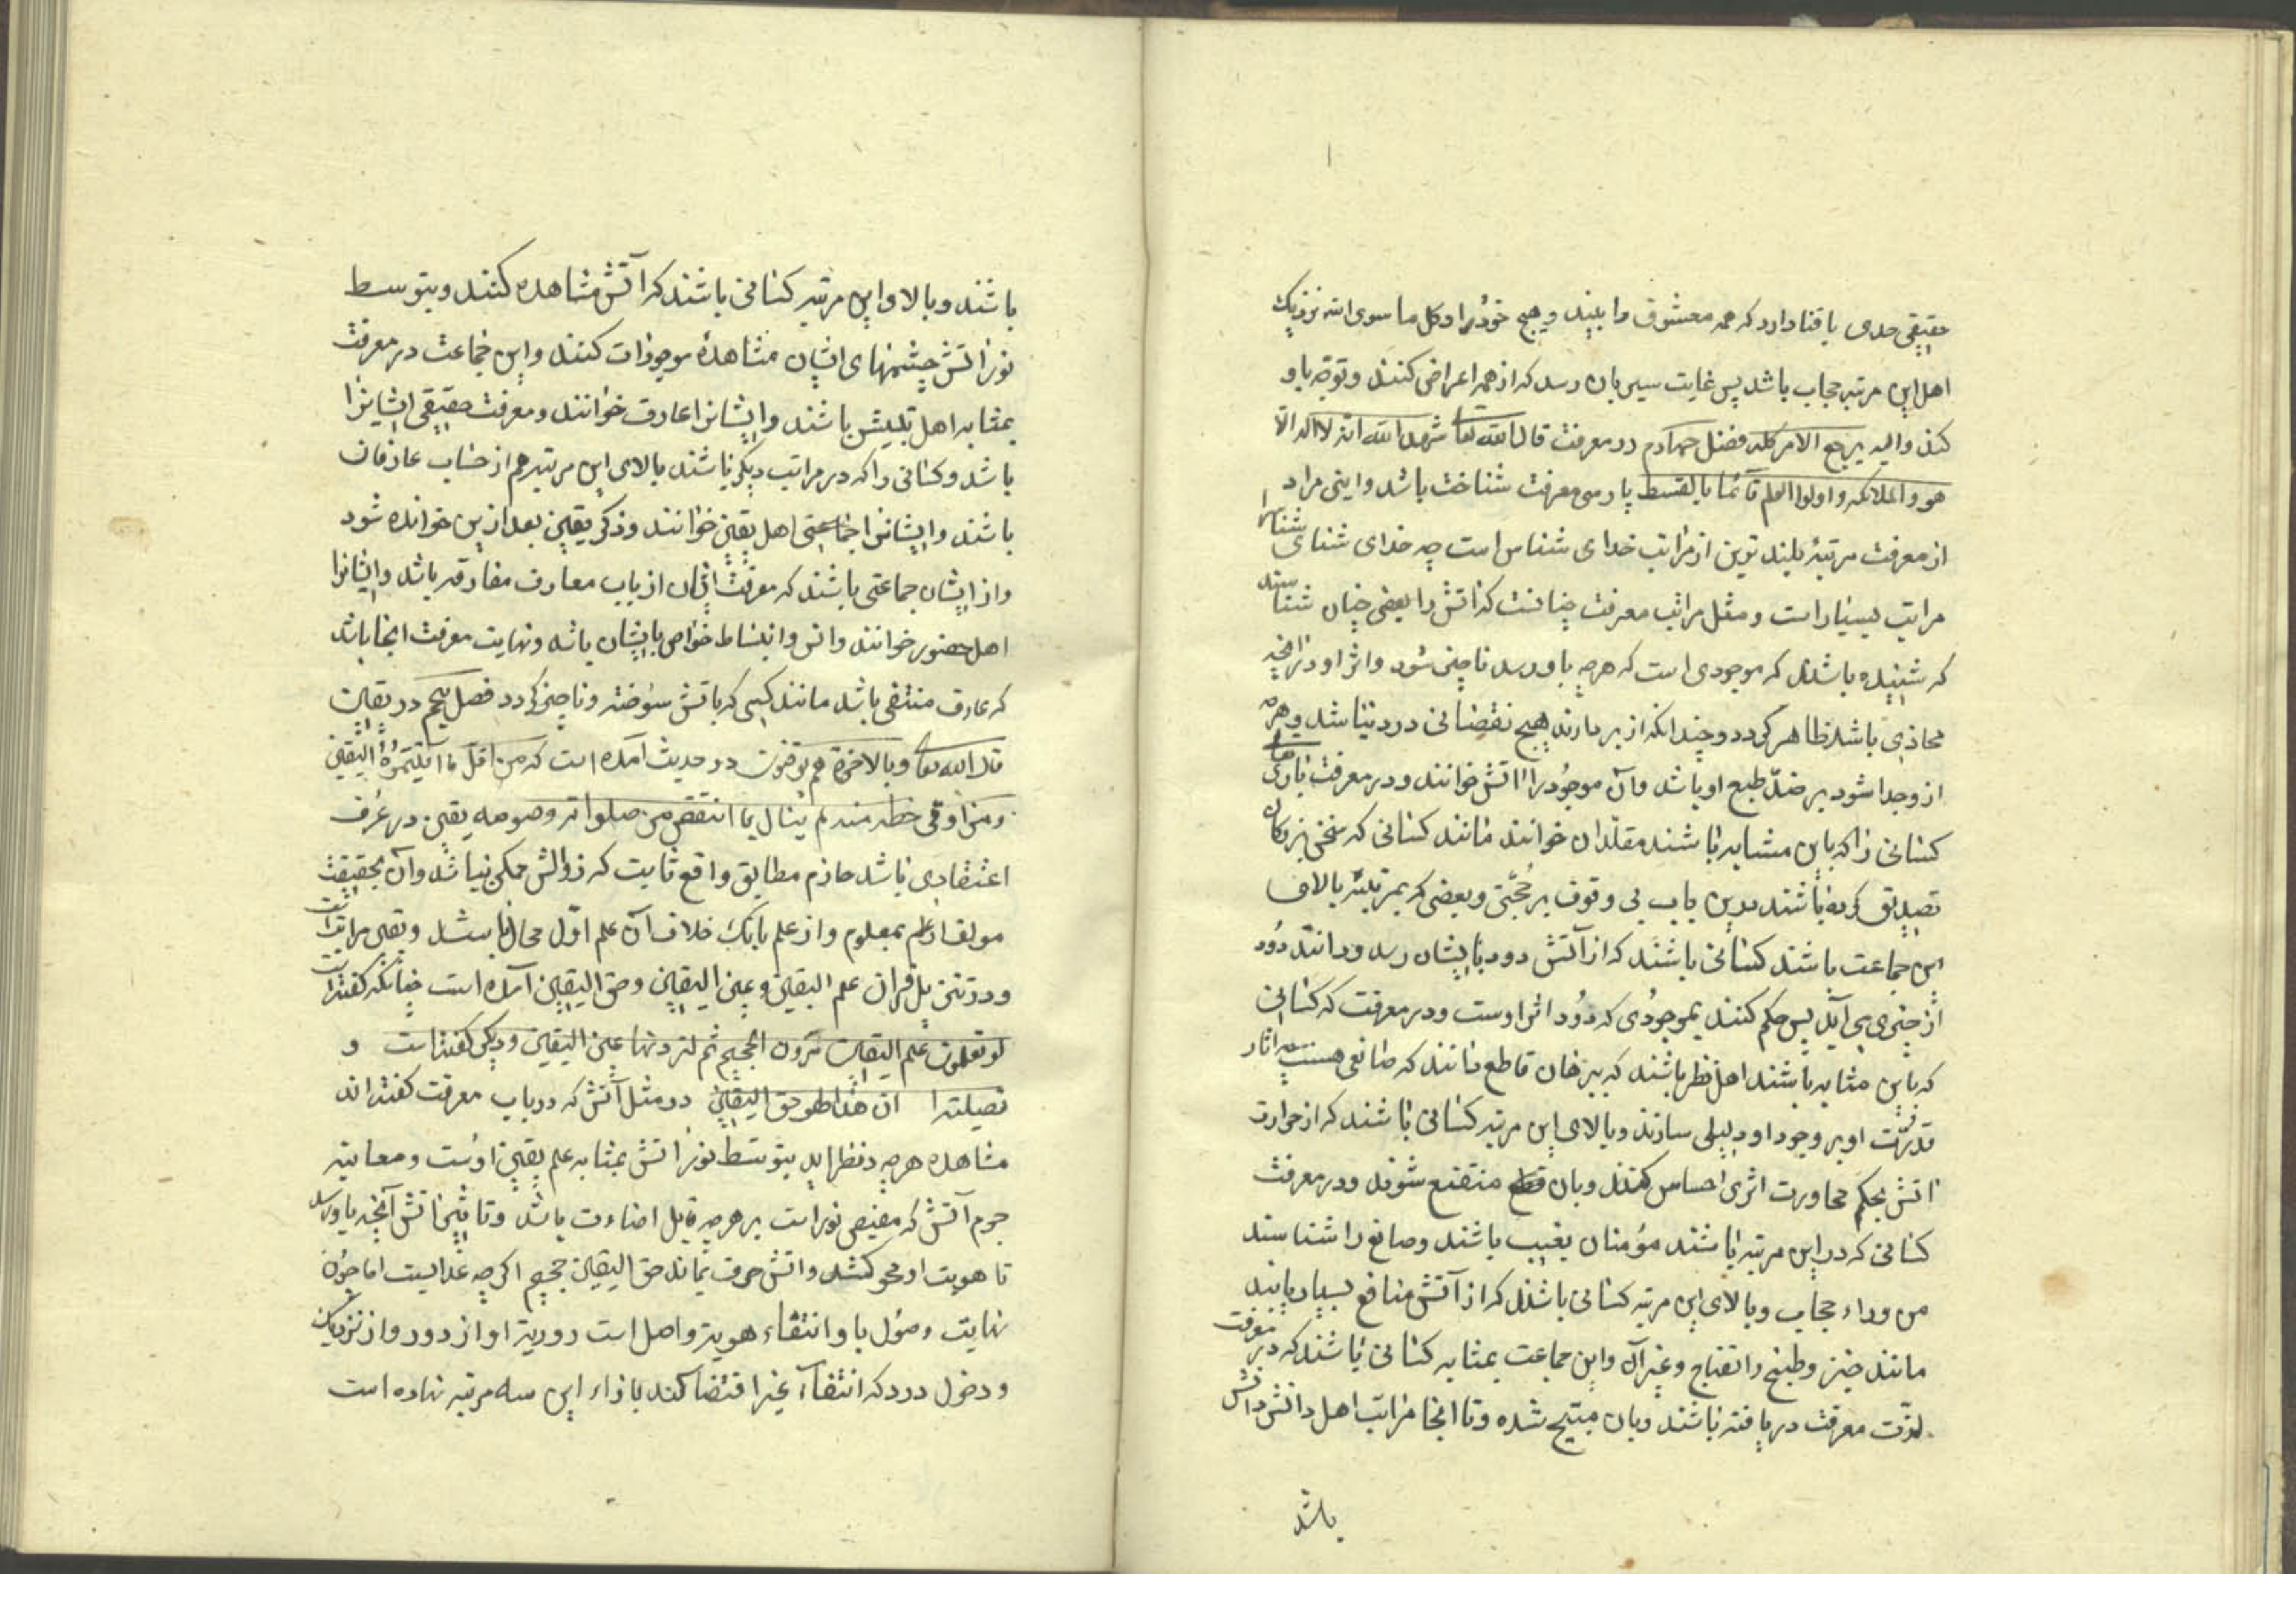 حقیقی حدی با قنا دارد که همه معشوق را بیند و هیچ خود را و کل ما سوی الله نزدیک
اهل این مرتبه حجاب باشد پس غایت سیر بان رسد که از همه اعراض کنند و توجه باو
کند والیه یرجع الامر کله فصل چهارم در معرفت قال الله تعا شهد الله انه لا اله الا
هو والملائکه و اولوا العلم قائما بالقسط پارسی معرفت شناخت باشد و اینجا مراد
از معرفت مرتبهٔ بلند ترین از مراتب خدای شناسی است چه خدای شناسی را
مراتب بسیار است و مثل مراتب معرفت چنانست که آتش را بعضی چنان شناسند
که شنیده باشند که موجودی است که هر چه باو رسد ناچیز شود و اثر او در آنچه
محاذی باشد ظاهر گردد و چندانکه از بر دارند هیچ نقصانی در و نباشد و هر چه
از و جدا شود بر ضد طبع او باشد و آن موجود را آتش خوانند و در معرفت باری تعالی
کسانی را که باین مثابه باشند مقلدان خوانند مانند کسانی که سخن بزرگان
تصدیق کرده باشند درین باب بی وقوف بر حجتی و بعضی که بمرتبهٔ بالای
این جماعت باشند کسانی باشند که از آتش دود بایشان رسد و دانند دود
از چیزی می آید پس حکم کنند بموجودی که دود اثر اوست و در معرفت که کسانی
که باین مثابه باشند اهل نظر باشند که ببرهان قاطع دانند که صانعی هست چه آثار
قدرت او بر وجود او دلیلی سازند و بالای این مرتبه کسانی باشند که از حرارت
آتش بحکم مجاورت اثری احساس کنند و بان منتفع شوند و در معرفت
کسانی که در این مرتبه باشند مؤمنان بغیب باشند و صانع را شناسند
من وراء حجاب و بالای این مرتبه کسانی باشند که از آتش منافع بسیار یابند
مانند خبز و طبخ و انضاج و غیر آن و این جماعت بمثابه کسانی باشند که در معرفت
لذت معرفت دریافته باشند و بان مبتهج شده و تا اینجا مراتب اهل دانش
باشد
باشند و بالا و این مرتبه کسانی باشند که آتش مشاهده کنند و بتوسط
نور آتش چشمهای ایشان مشاهدهٔ موجودات کنند و این جماعت در معرفت
بمثابه اهل بینش باشند و ایشانرا عارف خوانند و معرفت حقیقی ایشانرا
باشد و کسانی را که در مراتب دیگر باشند بالای این مرتبه هم از حساب عارفان
باشند و ایشانرا اهل یقین خوانند و ذکر یقین بعد ازین خوانده شود
و از ایشان جماعتی باشند که معرفت ایشان از باب معارف مفارقه باشد و ایشانرا
اهل حضور خوانند و انس و انبساط خواص بایشان باشد و نهایت معرفت اینجا باشد
که عارف منتفی باشد مانند کسی که باتش سوخته و ناچیز گردد فصل پنجم در یقین
قال الله تعا وبالاخرة هم یوقنون در حدیث آمده است که من اقل ما اوتیتموه الیقین
و من اوتی حظه منه لم یبال بما انتقص من صلواته وصومه یقین در عرف
اعتقادی باشد جازم مطابق واقع ثابت که زوالش ممکن نباشد و آن بحقیقت
مولف از علم بمعلوم و از علم بانک خلاف آن علم اول محال باشد و یقین را مراتب است
و در تنزیل قران علم الیقین و عین الیقین و حق الیقین آمده است چنانکه گفته است
لو تعلمون علم الیقین لترون الجحیم ثم لترونها عین الیقین و دیگر گفته است و
تصلیة ان هذا لهو حق الیقین در مثل آتش که در باب معرفت گفته اند
مشاهده هر چه در نظر اید بتوسط نور آتش بمثابه علم یقین اوست و معاینه
جرم آتش که مفیض نور است بر هر چه قابل اضاءت باشد و تاثیر آتش آنچه باو رسد
تا هویت او محو کند و آتش صرف بماند حق الیقین جحیم اگر چه عذابیست اما چون
نهایت وصول باو انتفاء هویة واصل است رویة او از دور و از نزدیک
و دخول درو که انتفاء غیر اقتضا کند بازاء این سه مرتبه نهاده است